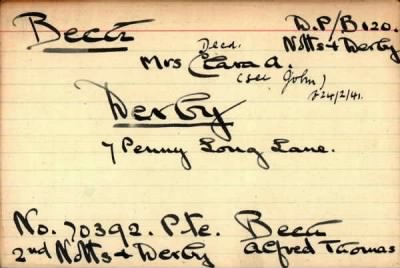 Beck D.P/B120.
Decd. Notts & Derby
Mrs Clara A.
(see John)
24/2/41.
Derby
7 Penny Long Lane.
No. 70392. Pte. Beck
2nd Notts & Derby Alfred Thomas